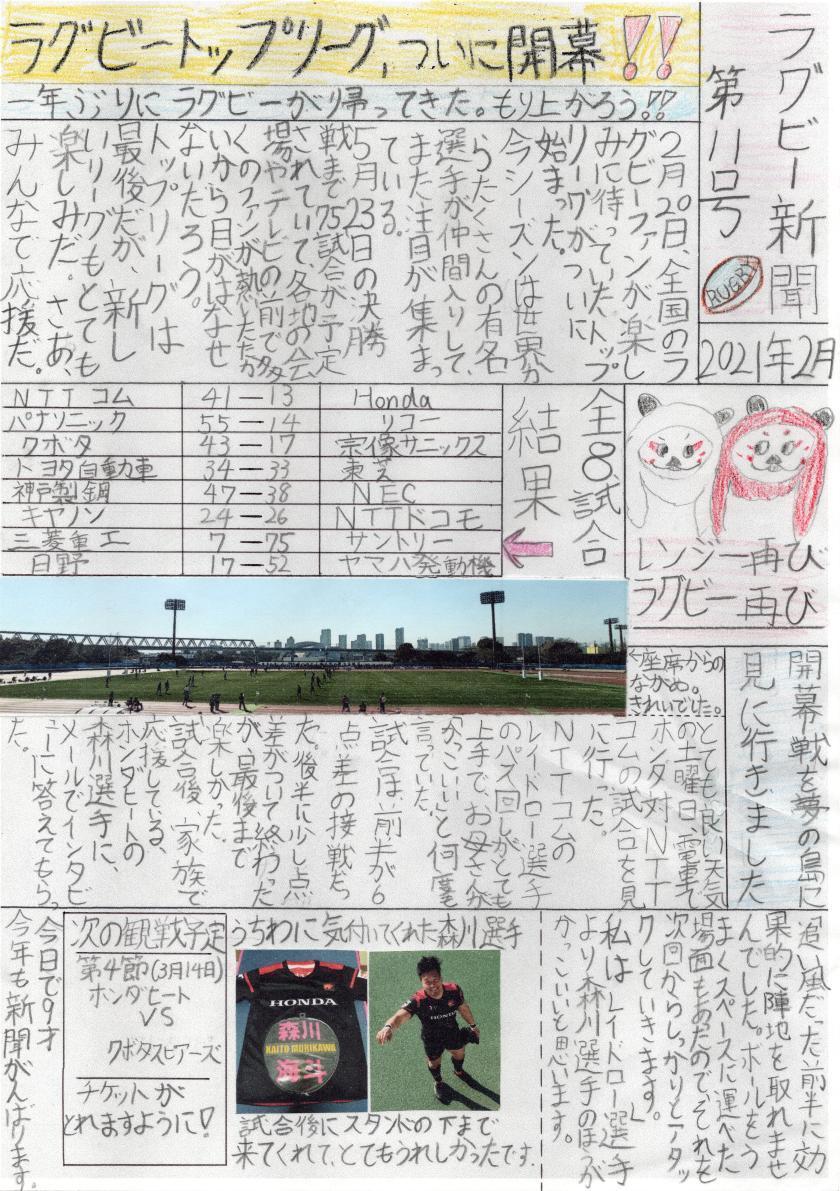 ラグビー新聞
第11号
RUGBY
2021年2月
ラグビートップリーグ、ついに開幕!!
一年ぶりにラグビーがり帰ってきた。もり上がろう!!
2月20日、全国のラ
グビーファンが楽し
みに待っていたトップ
リーグがついに
始まった。
今シーズンは世界か
らたくさんの有名
選手が仲間入りして、
また注目が集まっ
ている。
5月23日の決勝
戦まで75試合が予定
されていて各地の会
場やテレビの前で多
くのファンが熱したたか
いから目がはなせ
ないだろう。
トップリーグは
最後だが、新し
いリーグもとても
楽しみだ。さあ、
みんなで応援だ。
レンジー再び
ラグビー再び
全8試合
結果
NTTコム 41-13 Honda
パナソニック 55-14 リコー
クボタ 43-17 宗像サニックス
トヨタ自動車 34-33 東芝
神戸製鋼 47-38 NEC
キヤノン 24-26 NTTドコモ
三菱重工 7-75 サントリー
日野 17-52 ヤマハ発動機
←座席からの
ながめ。
きれいでした。
開幕戦を夢の島に
見に行きました
とても良い天気
の土曜日、電車で
ホンダ対NTT
コムの試合を見
に行った。
NTTコムの
レイドロー選手
のパス回しがとても
上手で、お母さんが
「かっこいい」と何度も
言っていた。
試合は前半が6
点差の接戦だっ
た。後半に少し点
差がついて終わった
が、最後まで
楽しかった。
試合後、家族で
応援している、
ホンダヒートの
森川選手に、
メールでインタビ
ューに答えてもらっ
た。
「追い風だった前半に効
果的に陣地を取れませ
んでした。ボールをう
まくスペースに運べた
場面もあったので、それを
次回からしっかりとアタッ
クしていきます。」
私はレイドロー選手
より森川選手のほうが
かっこいいと思います。
うちわに気付いてくれた森川選手
HONDA
森川
KAITO MORIKAWA
海斗
HONDA
試合後にスタンドの下まで
来てくれて、とてもうれしかったです。
次の観戦予定
第4節(3月14日)
ホンダヒート
VS
クボタスピアーズ
チケットが
とれますように!
今日で9才
今年も新聞がんばります。